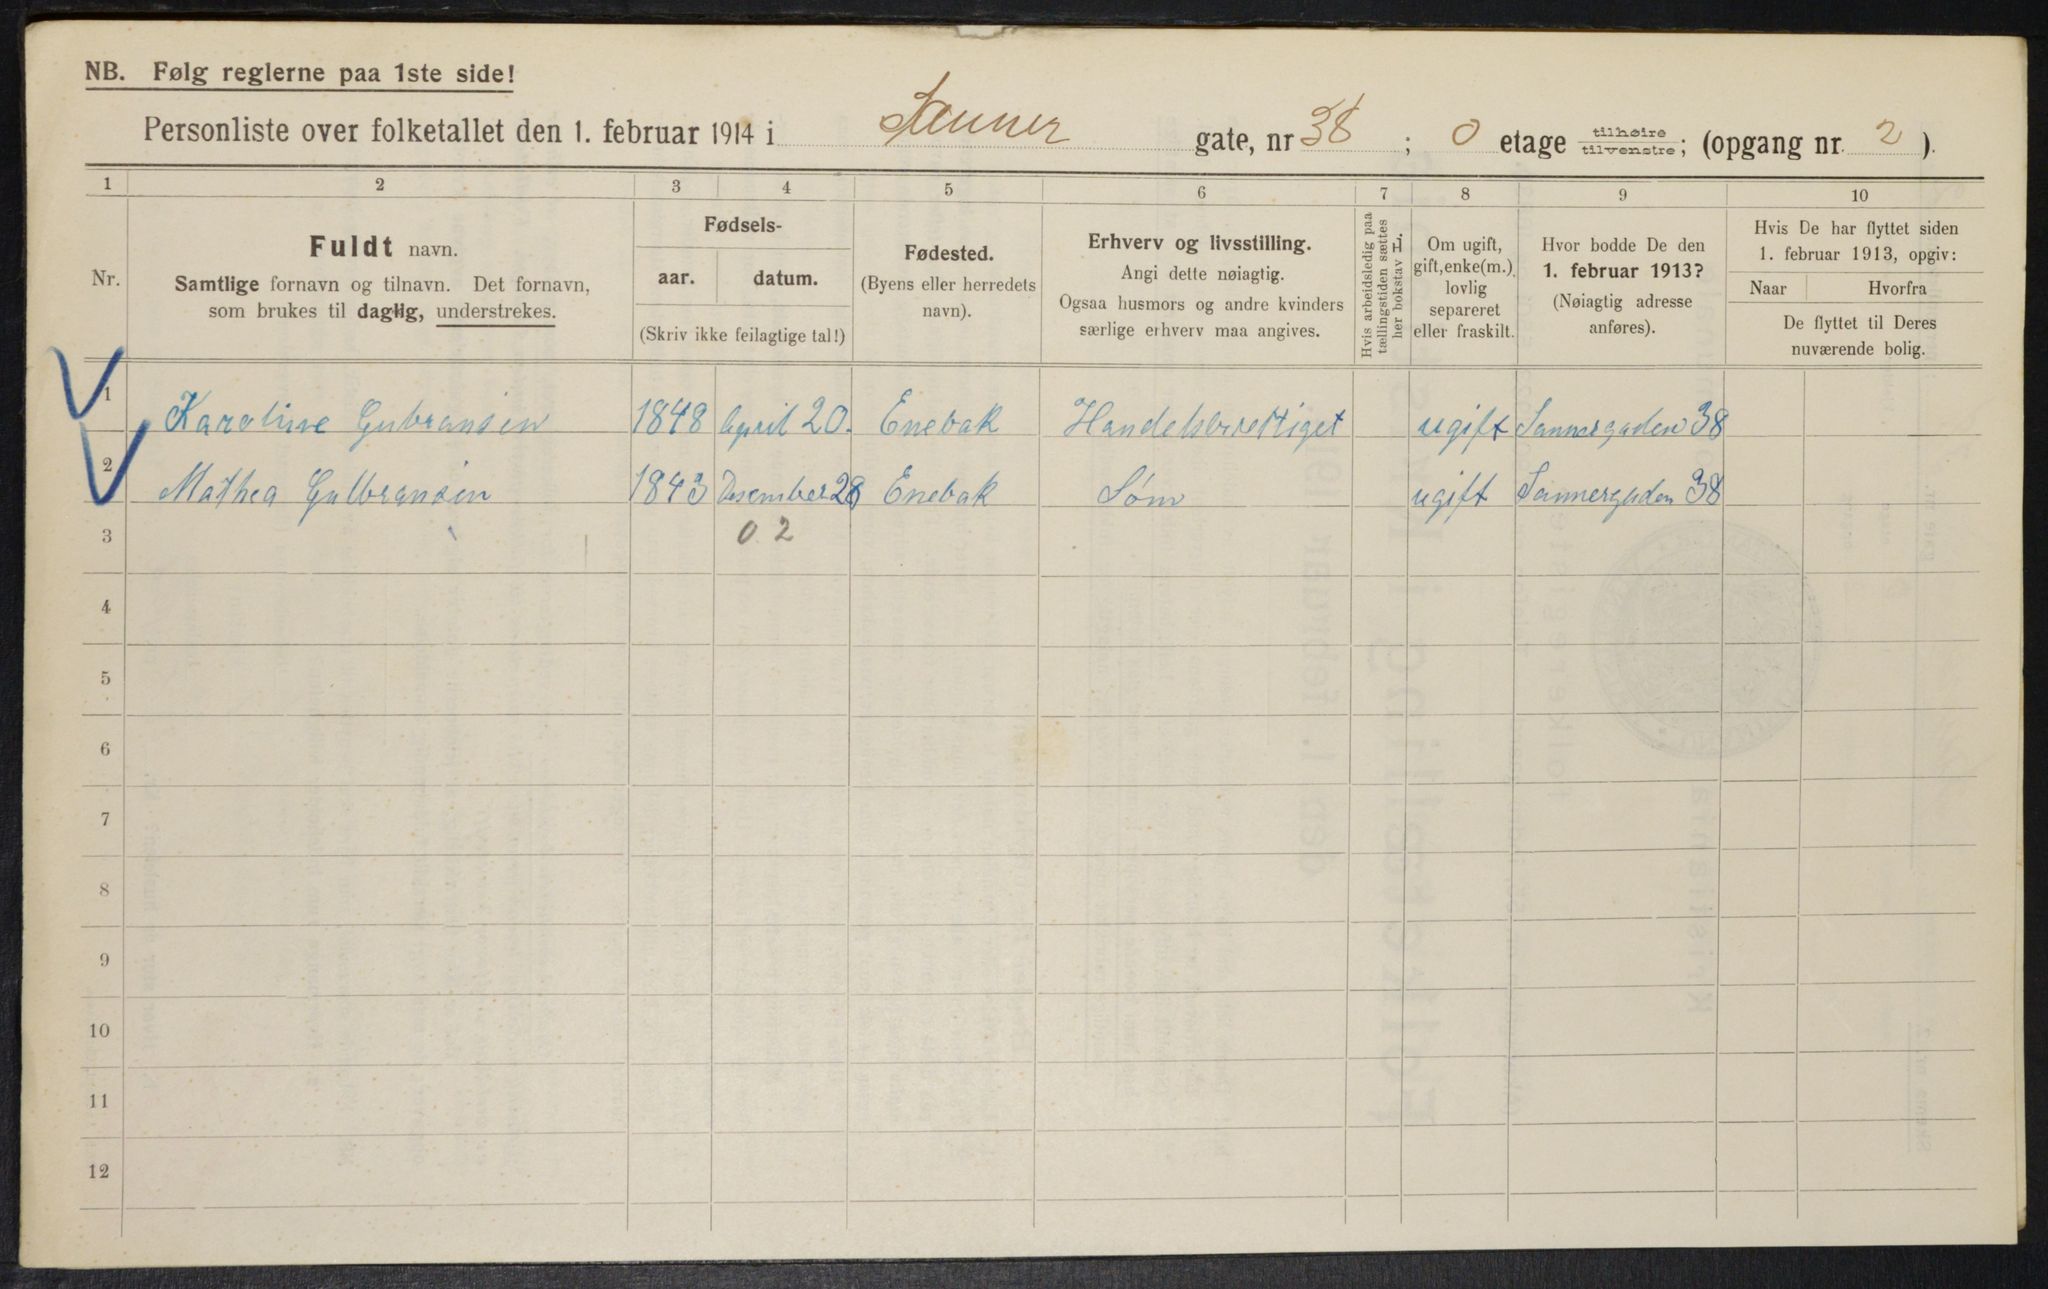 NB. Følg reglerne paa 1ste side!
Personliste over folketallet den 1. februar 1914 i Sanner gate, nr 38 ; 0 etage tilhøire/tilvenstre; (opgang nr. 2 ).
1 2 3 4 5 6 7 8 9 10
Nr.
Fuldt navn.
Samtlige fornavn og tilnavn. Det fornavn,
som brukes til daglig, understrekes.
Fødsels-
aar. datum.
(Skriv ikke feilagtige tal!)
Fødested.
(Byens eller herredets
navn).
Erhverv og livsstilling.
Angi dette nøiagtig.
Ogsaa husmors og andre kvinders
særlige erhverv maa angives.
Hvis arbeidsledig paa
tællingstiden sættes
her bokstav L.
Om ugift,
gift, enke(m.),
lovlig
separeret
eller fraskilt.
Hvor bodde De den
1. februar 1913?
(Nøiagtig adresse
anføres).
Hvis De har flyttet siden
1. februar 1913, opgiv:
Naar Hvorfra
De flyttet til Deres
nuværende bolig.
1 Karoline Gubransen 1848 April 20. Enebak ugift Sannergaden 38
2 Mathea Gulbransen 1843 Desember 28 Enebak Søm ugift Sannergaden 38
3 0 2
4
5
6
7
8
9
10
11
12